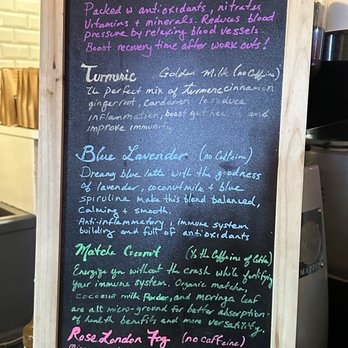 Packed w antioxidants, nitrates,
Vitamins + minerals. Reduces blood
pressure by relaxing blood vessels.
Boost recovery time after work outs!
Turmeric Golden Milk (no Caffeine)
The perfect mix of turmeric cinnamon
ginger root, Cardamon to reduce
inflammation, boost gut health and
improve immunity
Blue Lavender (no Caffeine)
Dreamy blue latte with the goodness
of lavender, coconut milk & blue
spirulina make this blend balanced,
Calming & smooth.
Anti-inflammatory, immune system
building and full of antioxidants
Matcha Coconut (1/3 the Caffeine of Coffee)
Energize you without the crash while fortifying
your immune system. Organic matcha,
coconut milk Powder, and moringa leaf
are all micro-ground for better absorption
of health benefits and more versatility.
Rose London Fog (no caffeine)